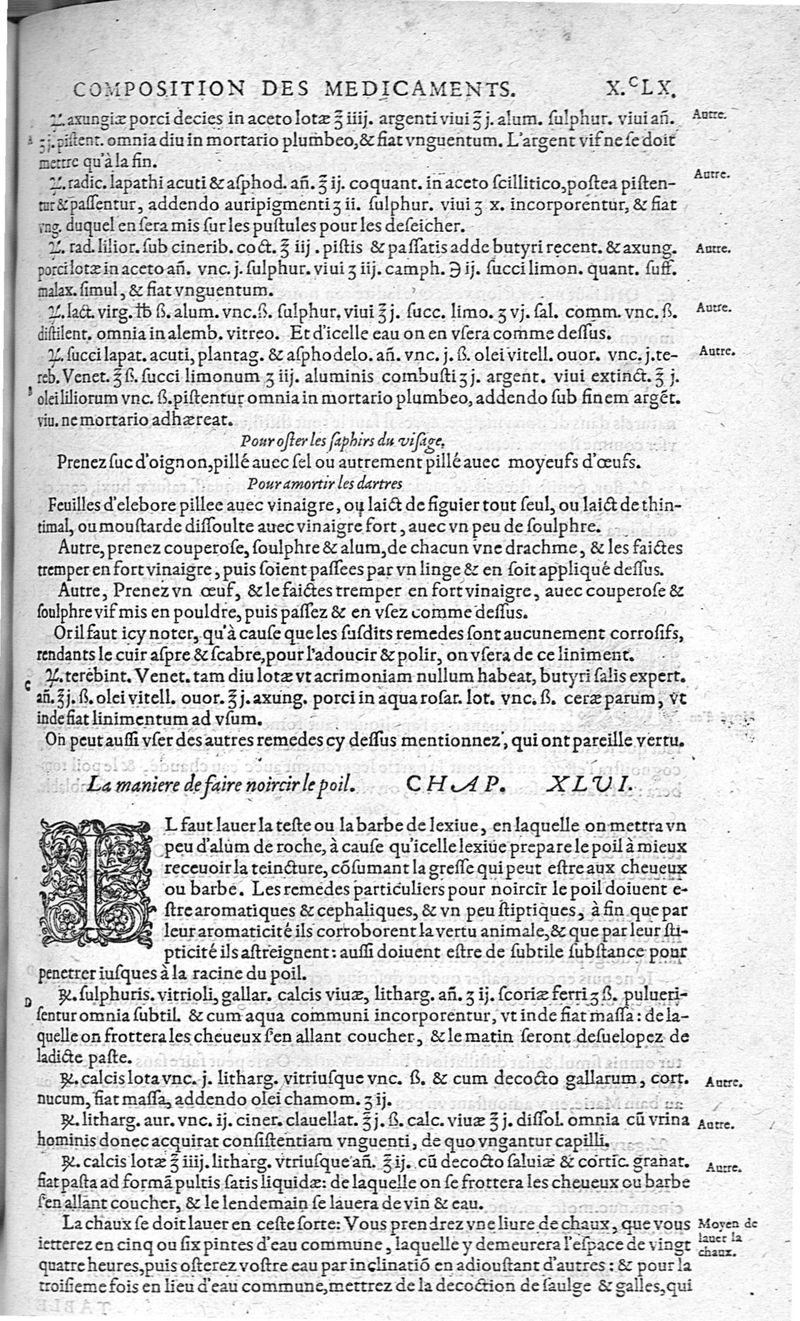 COMPOSITION DES MEDICAMENTS. X.CLX.
℞. axungiæ porci decies in aceto lotæ ℥ iiij. argenti viui ℥ j. alum. sulphur. viui añ. Autre.
ʒ j. pistent. omnia diu in mortario plumbeo, & fiat vnguentum. L'argent vif ne se doit
mettre qu'à la fin.
℞. radic. lapathi acuti & asphod. añ. ℥ ij. coquant. in aceto scillitico, postea pisten- Autre.
tur & passentur, addendo auripigmenti ʒ ii. sulphur. viui ʒ x. incorporentur, & fiat
vng. duquel en sera mis sur les pustules pour les deseicher.
℞. rad. lilior. sub cinerib. coct. ℥ iij. pistis & passatis adde butyri recent. & axung. Autre.
porci lotæ in aceto añ. vnc. j. sulphur. viui ʒ iij. camph. ℈ ij. succi limon. quant. suff.
malax. simul, & fiat vnguentum.
℞. lact. virg. ℔ ß. alum. vnc. ß. sulphur, viui ℥ j. succ. limo. ʒ vj. sal. comm. vnc. ß. Autre.
distilent. omnia in alemb. vitreo. Et d'icelle eau on en vsera comme dessus.
℞. succi lapat. acuti, plantag. & asphodelo. añ. vnc. j. ß. olei vitell. ouor. vnc. j. te- Autre.
reb. Venet. ℥ ß. succi limonum ʒ iij. aluminis combusti ʒ j. argent. viui extinct. ℥ j.
olei liliorum vnc. ß. pistentur omnia in mortario plumbeo, addendo sub finem argẽt.
viu. ne mortario adhæreat.
Pour oster les saphirs du visage.
Prenez suc d'oignon, pillé auec sel ou autrement pillé auec moyeufs d'œufs.
Pour amortir les dartres
Feuilles d'elebore pillee auec vinaigre, ou laict de figuier tout seul, ou laict de thin-
timal, ou moustarde dissoulte auec vinaigre fort, auec vn peu de soulphre.
Autre, prenez couperose, soulphre & alum, de chacun vne drachme, & les faictes
tremper en fort vinaigre, puis soient passees par vn linge & en soit appliqué dessus.
Autre, Prenez vn œuf, & le faictes tremper en fort vinaigre, auec couperose &
soulphre vif mis en pouldre, puis passez & en vsez comme dessus.
Or il faut icy noter, qu'à cause que les susdits remedes sont aucunement corrosifs,
rendants le cuir aspre & scabre, pour l'adoucir & polir, on vsera de ce liniment.
C ℞. terebint. Venet. tam diu lotæ vt acrimoniam nullum habeat, butyri salis expert.
añ. ℥ j. ß. olei vitell. ouor. ℥ j. axung. porci in aqua rosar. lot. vnc. ß. ceræ parum, vt
inde fiat linimentum ad vsum.
On peut aussi vser des autres remedes cy dessus mentionnez, qui ont pareille vertu.
La maniere de faire noircir le poil. CHAP. XLVI.
IL faut lauer la teste ou la barbe de lexiue, en laquelle on mettra vn
peu d'alum de roche, à cause qu'icelle lexiue prepare le poil à mieux
receuoir la teincture, cõsumant la gresse qui peut estre aux cheueux
ou barbe. Les remedes particuliers pour noircir le poil doiuent e-
stre aromatiques & cephaliques, & vn peu stiptiques, à fin que par
leur aromaticité ils corroborent la vertu animale, & que par leur sti-
pticité ils astreignent: aussi doiuent estre de subtile substance pour
penetrer iusques à la racine du poil.
D ℞. sulphuris. vitrioli, gallar. calcis viuæ, litharg. añ. ʒ ij. scoriæ ferri ʒ ß. pulueri-
sentur omnia subtil. & cum aqua communi incorporentur, vt inde fiat massa: de la-
quelle on frottera les cheueux s'en allant coucher, & le matin seront desuelopez de
ladicte paste.
℞. calcis lota vnc. j. litharg. vitriusque vnc. ß. & cum decocto gallarum, cort. Autre.
nucum, fiat massa, addendo olei chamom. ʒ ij.
℞. litharg. aur. vnc. ij. ciner. clauellat. ℥ j. ß. calc. viuæ ℥ j. dissol. omnia cũ vrina Autre.
hominis donec acquirat consistentiam vnguenti, de quo vngantur capilli.
℞. calcis lotæ ℥ iiij. litharg. vtriusque añ. ℥ ij. cũ decocto saluiæ & cortic. granat. Autre.
fiat pasta ad formã pultis satis liquidæ: de laquelle on se frottera les cheueux ou barbe
s'en allant coucher, & le lendemain se lauera de vin & eau.
La chaux se doit lauer en ceste sorte: Vous prendrez vne liure de chaux, que vous Moyen de
ietterez en cinq ou six pintes d'eau commune, laquelle y demeurera l'espace de vingt lauer la
quatre heures, puis osterez vostre eau par inclinatiõ en adioustant d'autres: & pour la chaux.
troisieme fois en lieu d'eau commune, mettrez de la decoction de saulge & galles, qui